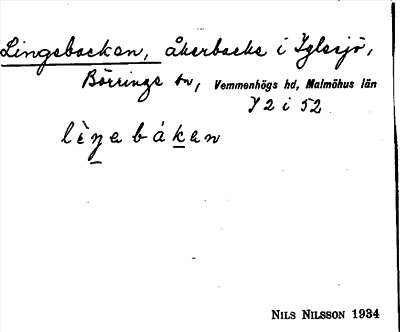 Lingebacken, åkerbacke i Yglesjö,
Börringe sn, Vemmenhögs hd, Malmöhus län
Y 2 i 52
lèŋebákan
NILS NILSSON 1934